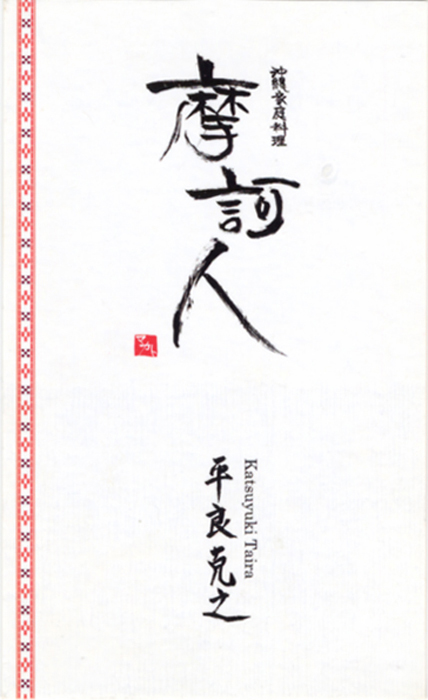 沖縄家庭料理
摩訶人
マカト
Katsuyuki Taira
平良克之